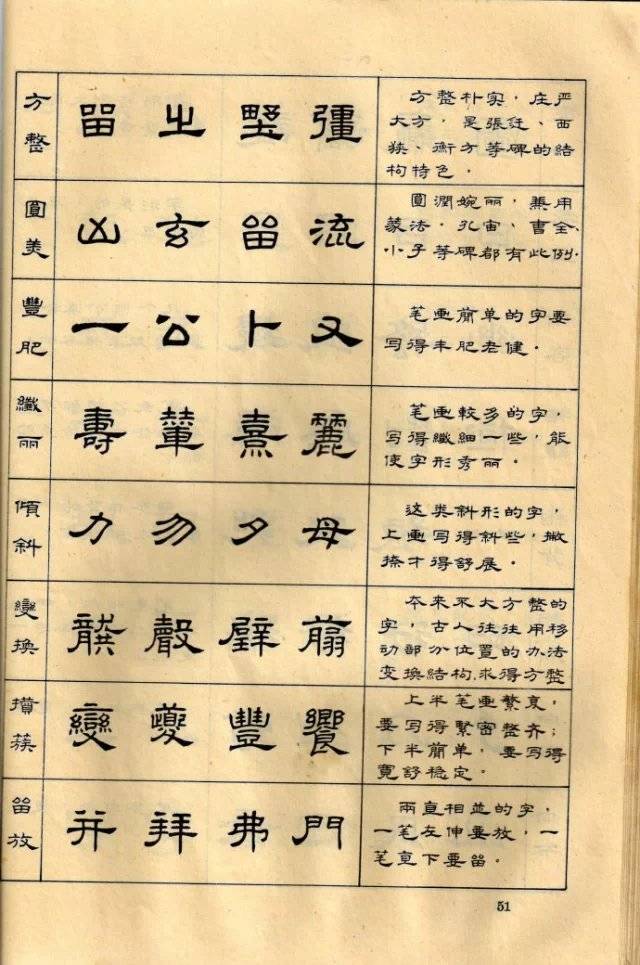 方整
留 之 彊
方整朴实，庄严
大方，是張迁、西
狭、衡方等碑的結
构特色。
圓美
凶 玄 留 流
圓潤婉丽，兼用
篆法，孔宙、曹全、
小子等碑都有此例.
豐肥
一 公 卜 又
笔画簡单的字要
写得丰肥老健。
纖丽
壽 輦 熹 麗
笔画較多的字，
写得纖細一些，能
使字形秀丽。
傾斜
力 勿 夕 母
这类斜形的字，
上画写得斜些，撇
捺才得舒展。
變换
龔 聲 壁 翦
本来不大方整的
字，古人往往用移
动部分位置的办法
变换結构,求得方整
攢蔟
變 夔 豐 饗
上半笔画繁，
要写得緊密整齐；
下半簡单，要写得
寬舒稳定。
留放
并 拜 弗 門
兩直相並的字，
一笔左伸要放，一
笔直下要留。
51